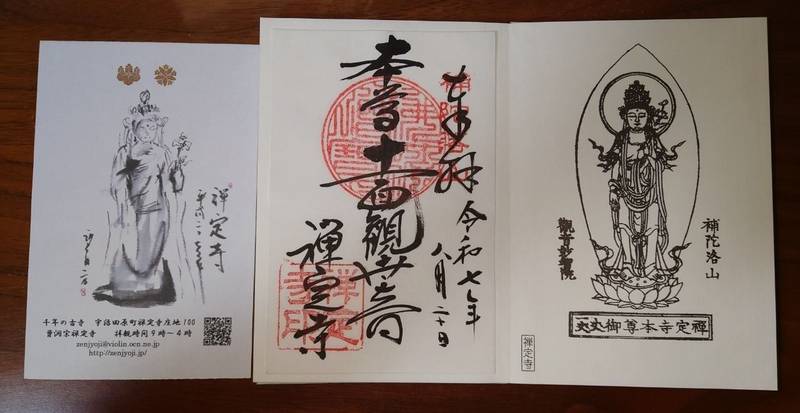 禅定寺
千年の古寺 宇治田原町禅定寺庄地100
曹洞宗禅定寺 拝観時間9時～4時
zenjyoji@violin.ocn.ne.jp
http://zenjyoji.jp/
奉拝
令和七年
八月二十日
本尊十一面觀世音
禅定寺
補陀洛山
禪定寺本尊御
禅定寺